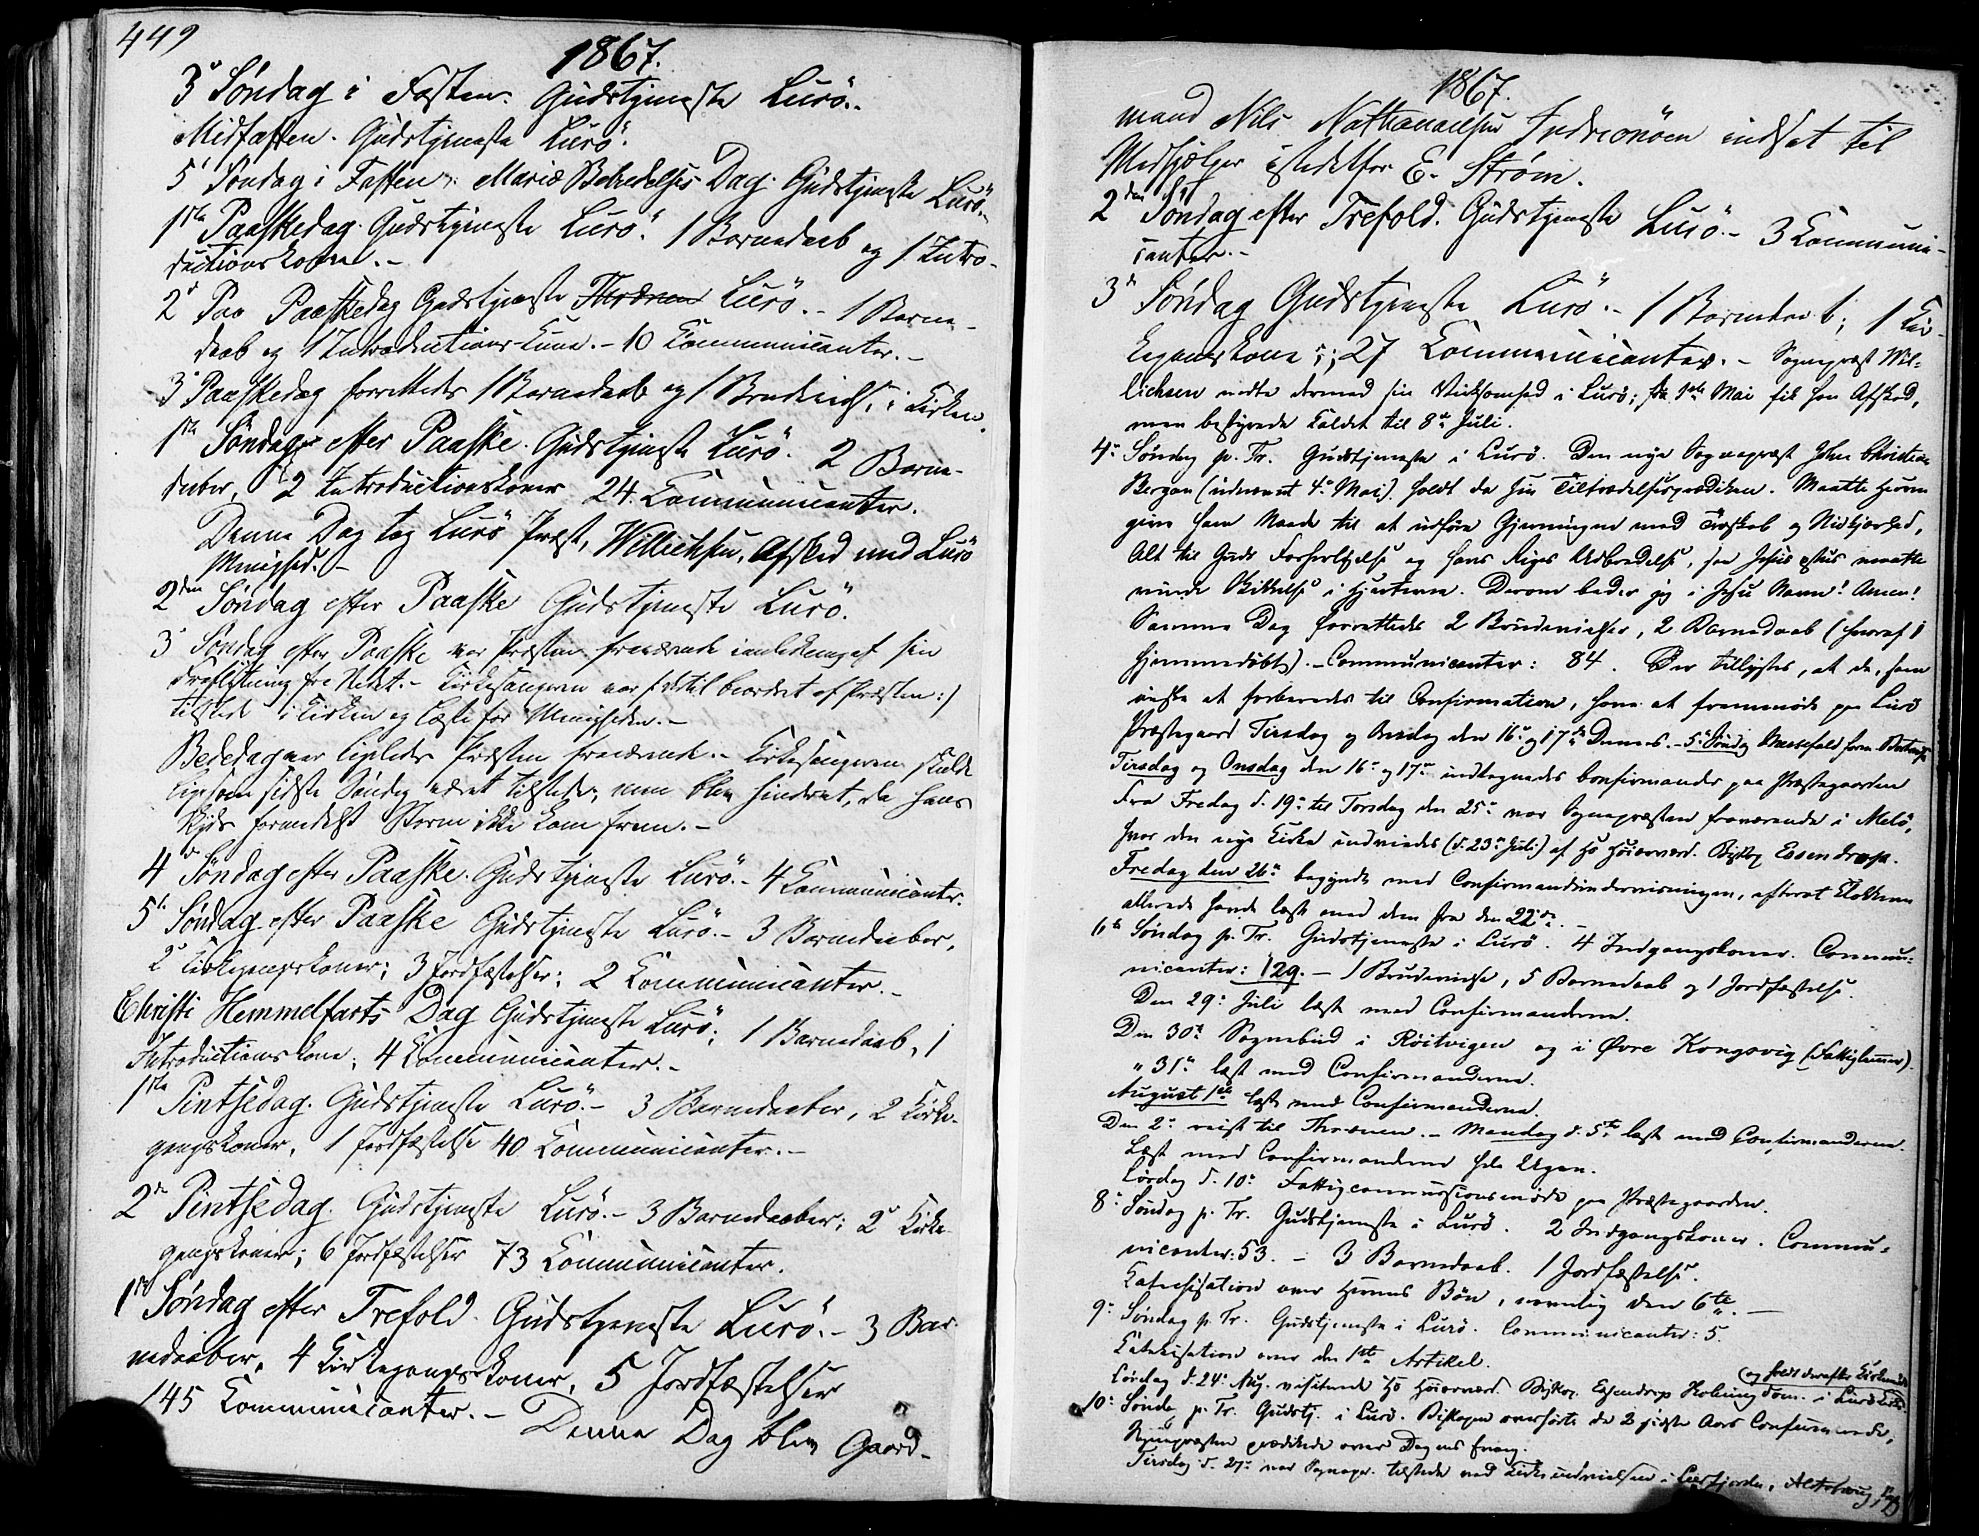 449
1867.
3e Søndag i Fasten. Gudstjeneste Lurö.
Midfasten. Gudstjeneste Lurö.
5 Søndag i Fasten, Mariæ Bebudelses Dag. Gudstjeneste Lurö.-
1ste Paaskedag. Gudstjeneste Lurö. 1 Barnedaab og 1 Intro-
ductionskone.-
2d Paaskedag Gudstjeneste Lurö.- 1 Barne-
daab og 1 Introductionskone.- 10 Communicanter.-
3 Paaskedag forrettedes 1 Barnedaab og 1 Brudevielse i Kirken.
1ste Søndag efter Paaske. Gudstjeneste Lurö. 2 Barne-
daaber, 2 Introductionskoner 24 Communicanter.
Denne Dag tog Lurö Præst, Willichsen, Afsked med Lurö
Menighed.-
2den Søndag efter Paaske Gudstjeneste Lurö.
3 Søndag efter Paaske var Præsten fraværende i anledning af sin
Fraflytning fra Stedet.- Kirkesangeren var (: dertil beordret af Præsten :)
tilstede i Kirken og læste for Menigheden.-
Bededag var ligeledes Præsten fraværende.- Kirkesangeren skulde
ligesom sidste Søndag været tilstede, men blev hindret, da hans
Skyds formedelst Storm ikke kom frem.-
4de Søndag efter Paaske. Gudstjeneste Lurö.- 4 Communicanter.
5te Søndag efter Paaske Gudstjeneste Lurö.- 3 Barnedaaber,
2 Kirkegangskoner; 3 Jordfæstelser; 2 Communicanter.-
Christi Hemmelfarts Dag Gudstjeneste Lurö; 1 Barnedaab, 1
Introductionskone; 4 Communicanter.-
1ste Pintsedag. Gudstjeneste Lurö.- 3 Barnedaaber, 2 Kirke-
gangskoner, 1 Jordfæstelse 40 Communicanter.-
2n Pintsedag. Gudstjeneste Lurö.- 3 Barnedaaber; 2 Kirke-
gangskoner; 6 Jordfæstelser 73 Communicanter.
1ste Søndag efter Trefold. Gudstjeneste Lurö.- 3 Bar-
nedaaber, 4 Kirkegangskoner, 5 Jordfæstelser
145 Communicanter.- Denne Dag blev Gaard-
1867.
mand Nils Nathanaelsen Indreonöen indsat til
Medhjælper istedetfor E. Strøm.
2den Søndag efter Trefold. Gudstjeneste Lurö.- 3 Communi-
canter.-
3d Søndag Gudstjeneste Lurö.- 1 Barnedaab; 1 Kir-
kegangskone; 27 Communicanter.- Sognepræst Wil-
lichsen endte dermed sin Virksomhed i Lurö; 1ste Mai fik han Afsked,
men bestyrede Kaldet til 8de Juli.
4: Søndag p. Tr. Gudstjeneste i Lurö. Den nye Sognepræst John Christian
Bergan (udnævnt 4: Mai) holdt da sin Tiltrædelsesprædiken. Maatte Herren
give ham Naade til at udføre Gjerningen med Troskab og Nidkjærhed,
Alt til Guds Forherligelse og hans Riges Udbredelse, saa Jesus Xstus maatte
vinde Skikkelse i Hjerterne. Derom beder jeg i Jesu Navn! Amen!
Samme Dag forrettedes 2 Brudevielser, 2 Barnedaab (hvoraf 1
hjemmedøbt).- Communicanter: 84. Der tillystes, at de, som
ønske at forberedes til Confirmation, have at fremmøde paa Lurö
Præstegaard Tirsdag og Onsdag den 16: og 17de Dennes.- 5: Søndag Messefald
Tirsdag og Onsdag den 16: og 17: indtegnedes Confirmander paa Præstegaarden
Fra Fredag d. 19: til Torsdag den 25: var Sognepræsten fraværende i Melö,
hvor den nye Kirke indviedes (d. 23: Juli) af Hs Høiærværd. Biskop Essendrop.
Fredag den 26: begyndte med Confirmandundervisningen, efterat Klokkeren
allerede havde læst med dem fra den 22de.-
6te Søndag p. Tr. Gudstjeneste i Lurö. 4 Indgangskoner. Commu-
nicanter: 129.- 1 Brudevielse, 5 Barnedaab og 1 Jordfæstelse.
Den 29: Juli læst med Confirmanderne.
Den 30: Sognebud i Röitvigen og i Øvre Kongsvig (Fattiglemmer).
" 31: læst med Confirmanderne.
August 1ste læst med Confirmanderne.
Den 2: reist til Thrænen.- Mandag d. 5te læst med Confirmanderne.
Læst med Confirmanderne hele Ugen.
Lørdag d. 10: Fattigcommissionsmöde paa Præstegaarden.
8: Søndag p. Tr. Gudstjeneste i Lurö. 2 Indgangskoner. Commu-
nicanter: 53.- 3 Barnedaab. 1 Jordfæstelse.
Katechisation over Herrens Bön, nemlig den 6te.-
9: Søndag p. Tr. Gudstjeneste i Lurö. Communicanter: 5.
Katekisation over den 1ste Artikel.
og holdt derefter
Lördag d. 24: Aug. visiterede Hs Høiærværd. Biskop Essendrop i Lurö
10: Sönd. p. Tr. Gudstj. i Lurö. Biskopen overhørte de 2 sidste Aars Confirmerede,
Sognepræsten prædikede over Dagens Evang.
Tirsdag d. 27: var Sognepr. tilstede ved Kirkeindvielsen i Leerfjorden, Alstahoug